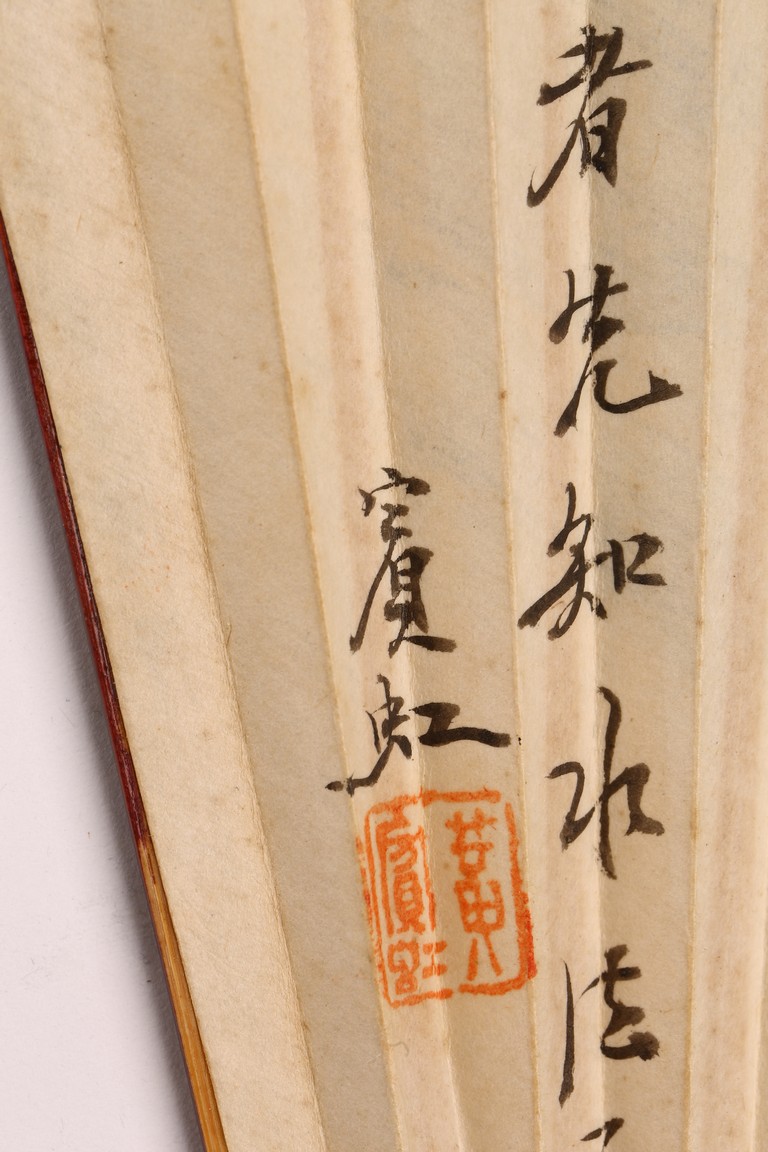 者先知水法
賓虹
黃賓虹